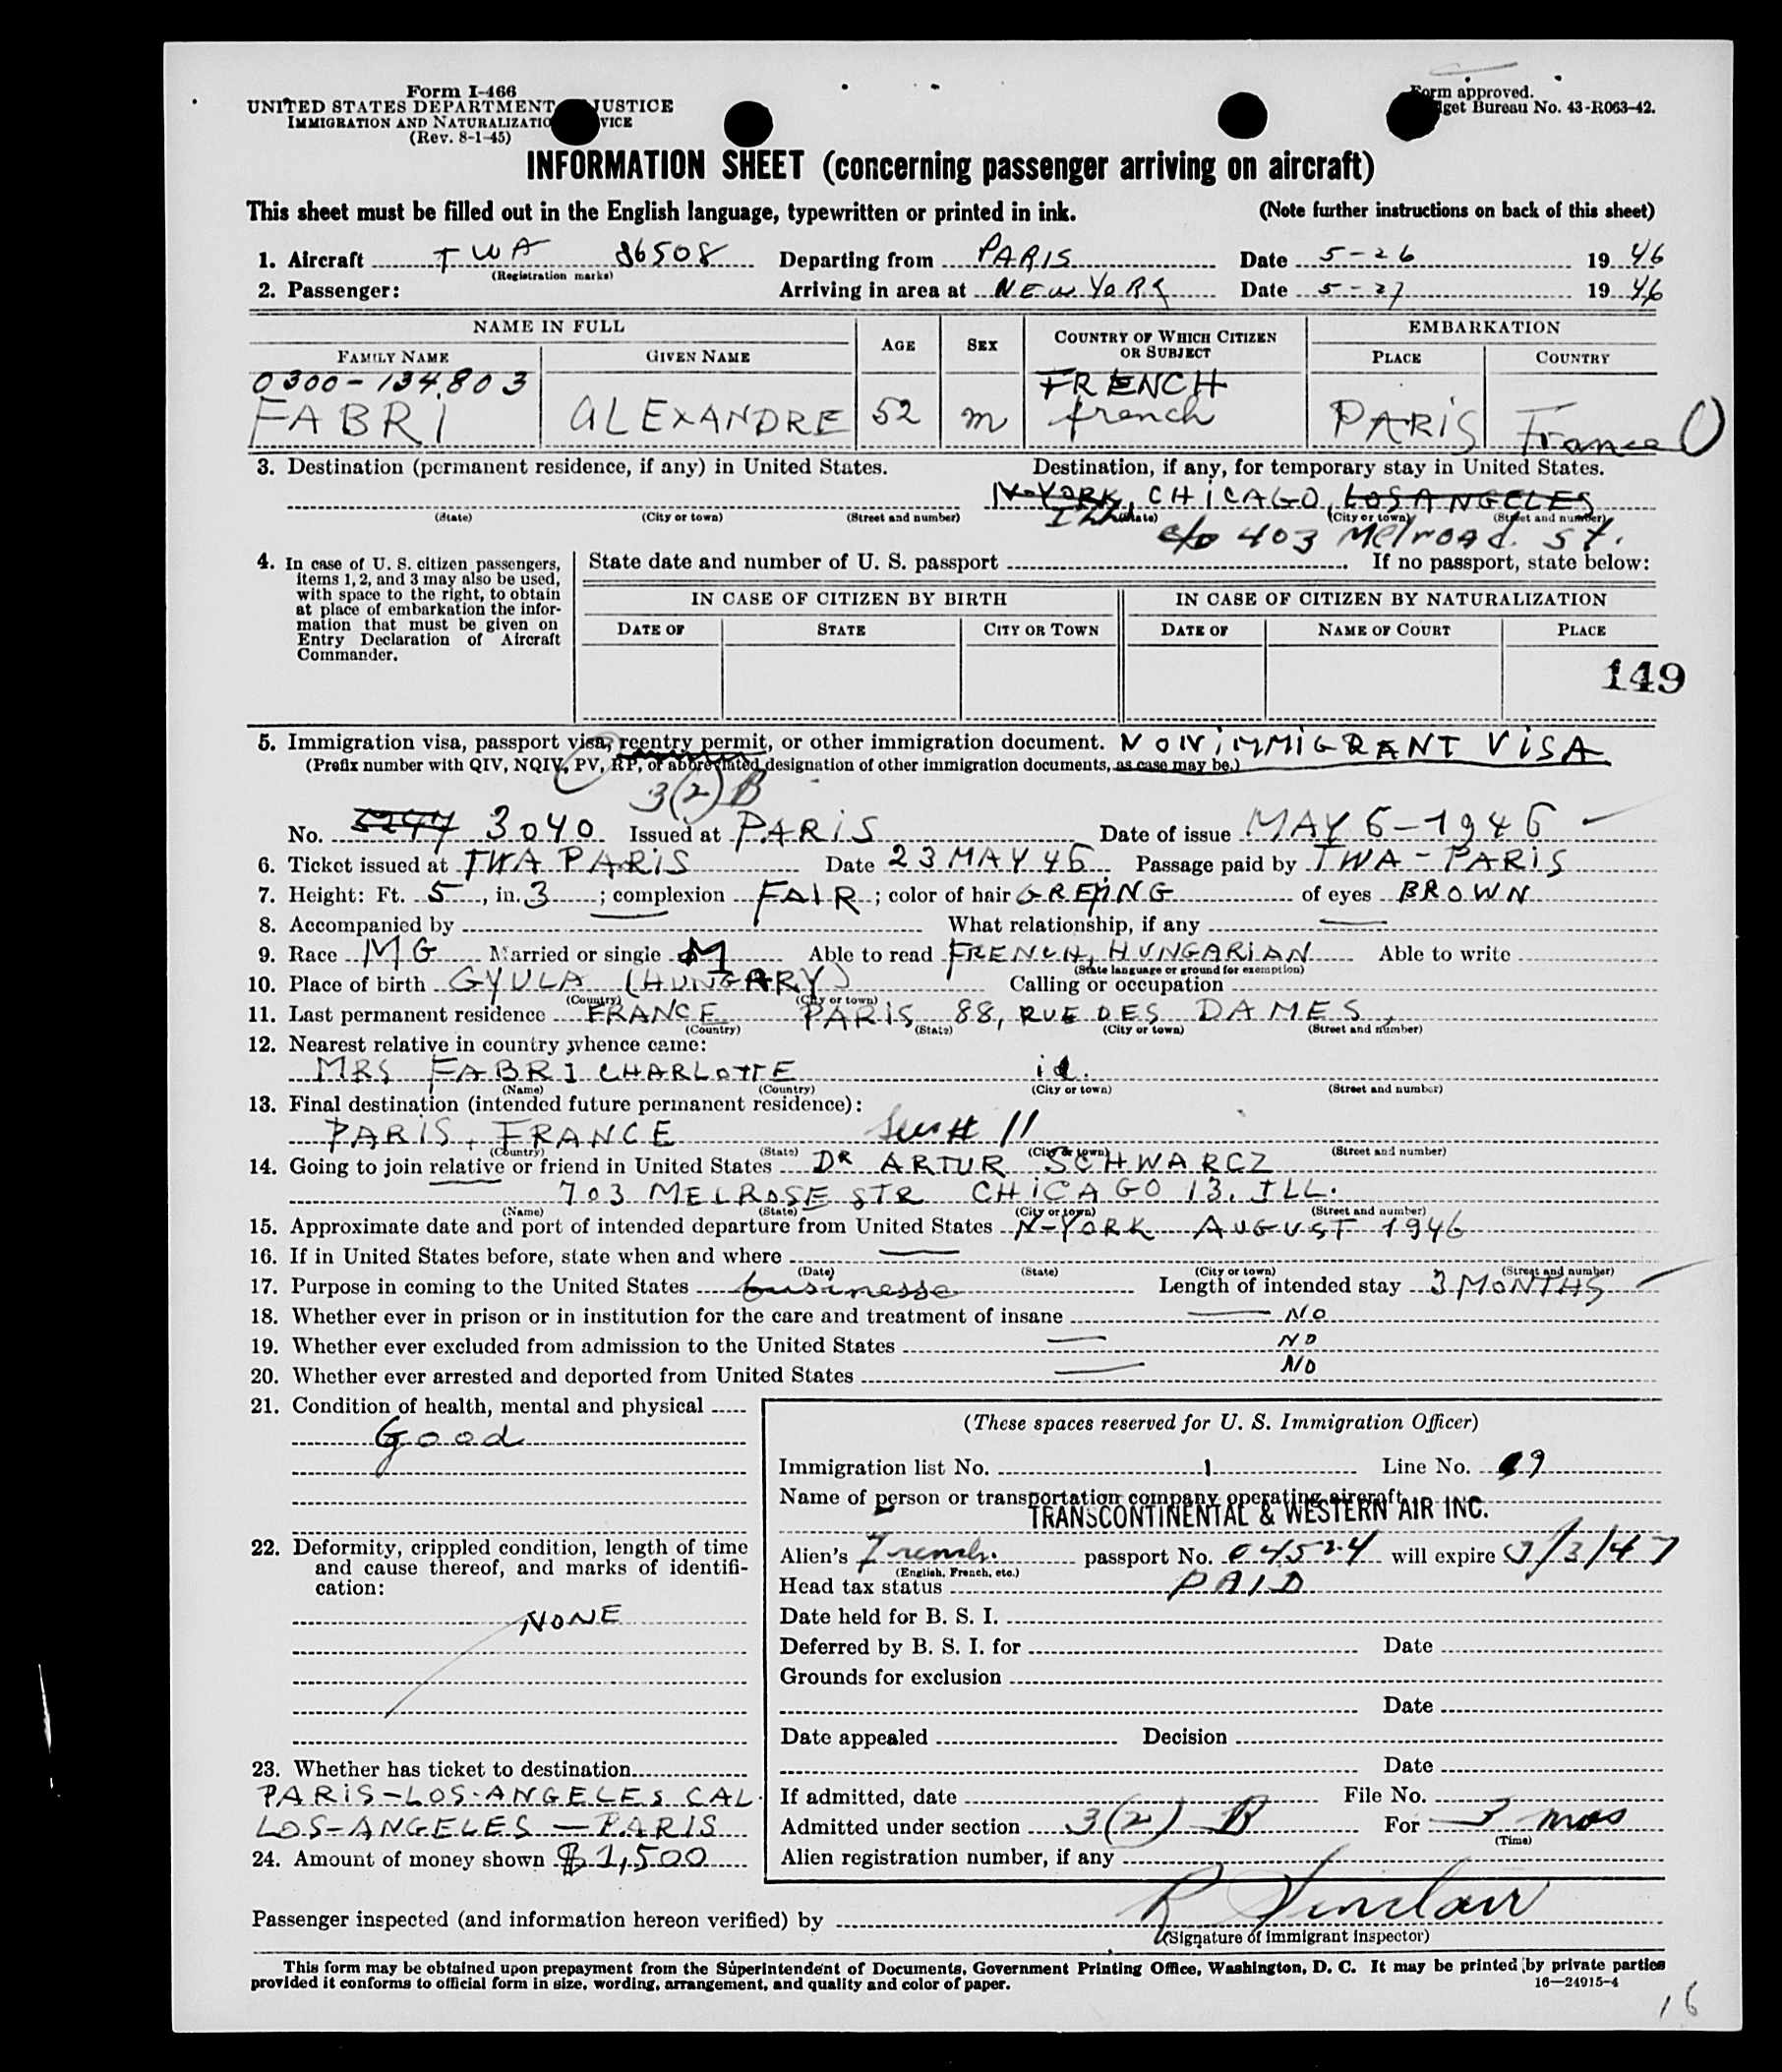 Form I-466
UNITED STATES DEPARTMENT JUSTICE
IMMIGRATION AND NATURALIZATIO VICE
(Rev. 8-1-45)
Form approved.
get Bureau No. 43-R063-42.
INFORMATION SHEET (concerning passenger arriving on aircraft)
This sheet must be filled out in the English language, typewritten or printed in ink. (Note further instructions on back of this sheet)
1. Aircraft TWA 86508 Departing from PARIS Date 5-26 1946
(Registration marks)
2. Passenger: Arriving in area at NEW YORK Date 5-27 1946
NAME IN FULL AGE SEX COUNTRY OF WHICH CITIZEN OR SUBJECT EMBARKATION
FAMILY NAME GIVEN NAME PLACE COUNTRY
0300-134803 FRENCH
FABRI ALEXANDRE 52 M french PARIS France
3. Destination (permanent residence, if any) in United States. Destination, if any, for temporary stay in United States.
N-YORK, CHICAGO, LOS ANGELES
(State) (City or town) (Street and number) Ill (State) (City or town) (Street and number)
c/o 403 Melroad. St.
4. In case of U. S. citizen passengers, items 1, 2, and 3 may also be used, with space to the right, to obtain at place of embarkation the information that must be given on Entry Declaration of Aircraft Commander.
State date and number of U. S. passport If no passport, state below:
IN CASE OF CITIZEN BY BIRTH IN CASE OF CITIZEN BY NATURALIZATION
DATE OF STATE CITY OR TOWN DATE OF NAME OF COURT PLACE
149
5. Immigration visa, passport visa, reentry permit, or other immigration document. NONIMMIGRANT VISA
(Prefix number with QIV, NQIV, PV, RP, or abbreviated designation of other immigration documents, as case may be.)
3(2)B
No. 3040 Issued at PARIS Date of issue MAY 6-1946
6. Ticket issued at TWA PARIS Date 23 MAY 46 Passage paid by TWA-PARIS
7. Height: Ft. 5, in. 3; complexion FAIR; color of hair GREYING of eyes BROWN
8. Accompanied by What relationship, if any
9. Race MG Married or single M Able to read FRENCH, HUNGARIAN Able to write
(State language or ground for exemption)
10. Place of birth GYULA (HUNGARY) Calling or occupation
(Country) (City or town)
11. Last permanent residence FRANCE PARIS 88, RUE DES DAMES,
(Country) (State) (City or town) (Street and number)
12. Nearest relative in country whence came:
MRS FABRI CHARLOTTE id.
(Name) (Country) (City or town) (Street and number)
13. Final destination (intended future permanent residence):
PARIS, FRANCE See # 11
(Country) (State) (City or town) (Street and number)
14. Going to join relative or friend in United States DR ARTUR SCHWARCZ
703 MELROSE STR CHICAGO 13. ILL.
(Name) (State) (City or town) (Street and number)
15. Approximate date and port of intended departure from United States N-YORK AUGUST 1946
16. If in United States before, state when and where
(Date) (State) (City or town) (Street and number)
17. Purpose in coming to the United States businesse Length of intended stay 3 MONTHS
18. Whether ever in prison or in institution for the care and treatment of insane NO
19. Whether ever excluded from admission to the United States NO
20. Whether ever arrested and deported from United States NO
21. Condition of health, mental and physical
Good
22. Deformity, crippled condition, length of time and cause thereof, and marks of identification:
NONE
23. Whether has ticket to destination
PARIS-LOS-ANGELES CAL.
LOS-ANGELES - PARIS
24. Amount of money shown $1,500
(These spaces reserved for U. S. Immigration Officer)
Immigration list No. 1 Line No. 9
Name of person or transportation company operating aircraft
TRANSCONTINENTAL & WESTERN AIR INC.
Alien's French passport No. 04524 will expire 3/47
(English, French, etc.)
Head tax status PAID
Date held for B. S. I.
Deferred by B. S. I. for Date
Grounds for exclusion
Date
Date appealed Decision
Date
If admitted, date File No.
Admitted under section 3(2) B For 3 mos
(Time)
Alien registration number, if any
Passenger inspected (and information hereon verified) by R Sinclair
(Signature of immigrant inspector)
This form may be obtained upon prepayment from the Superintendent of Documents, Government Printing Office, Washington, D. C. It may be printed by private parties
provided it conforms to official form in size, wording, arrangement, and quality and color of paper. 16—24915-4
16